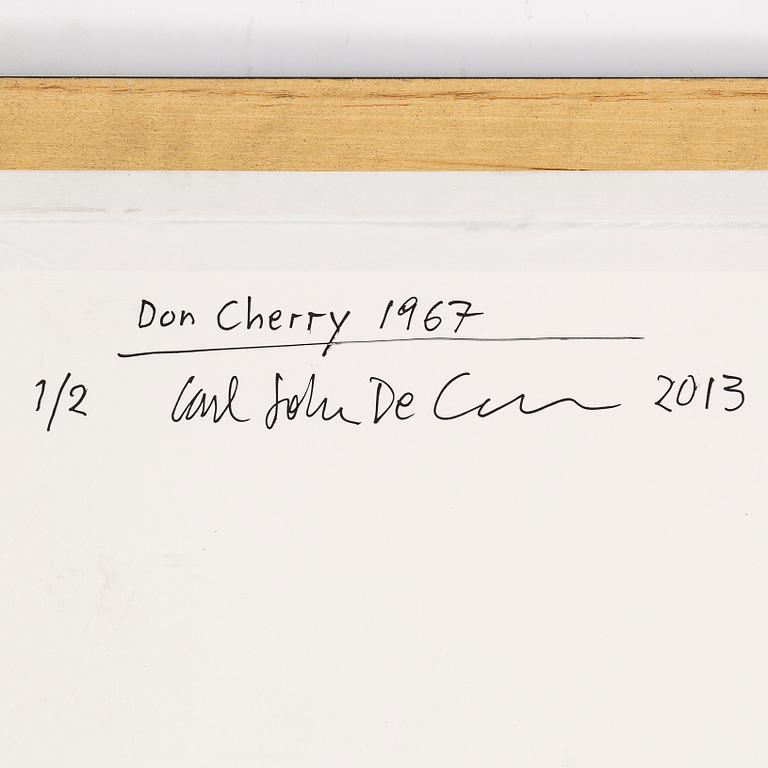 Don Cherry 1967
1/2 Carl John De Geer 2013